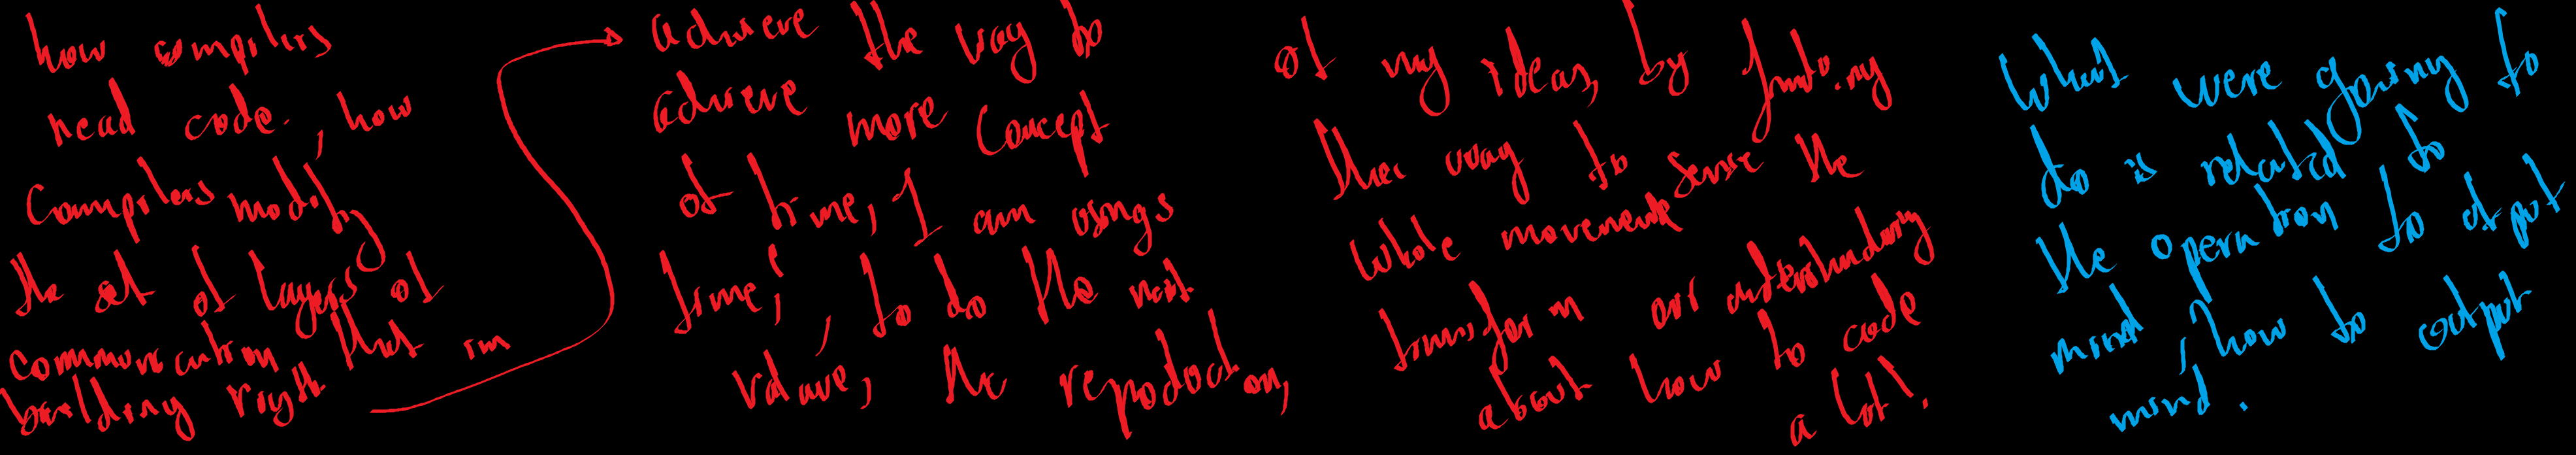 how compilers
read code. , how
Compilers modify
the set of layers of
communication that im
building right
achieve the way to
achieve more concept
of time, I can usings
time; to do the next
value, the repoduction,
of my ideas, by
ther way to sense the
whole movement
transform our
about how to code
a lot!.
What were going to
do is related to
the operation to otput
mind, how to output
mind.